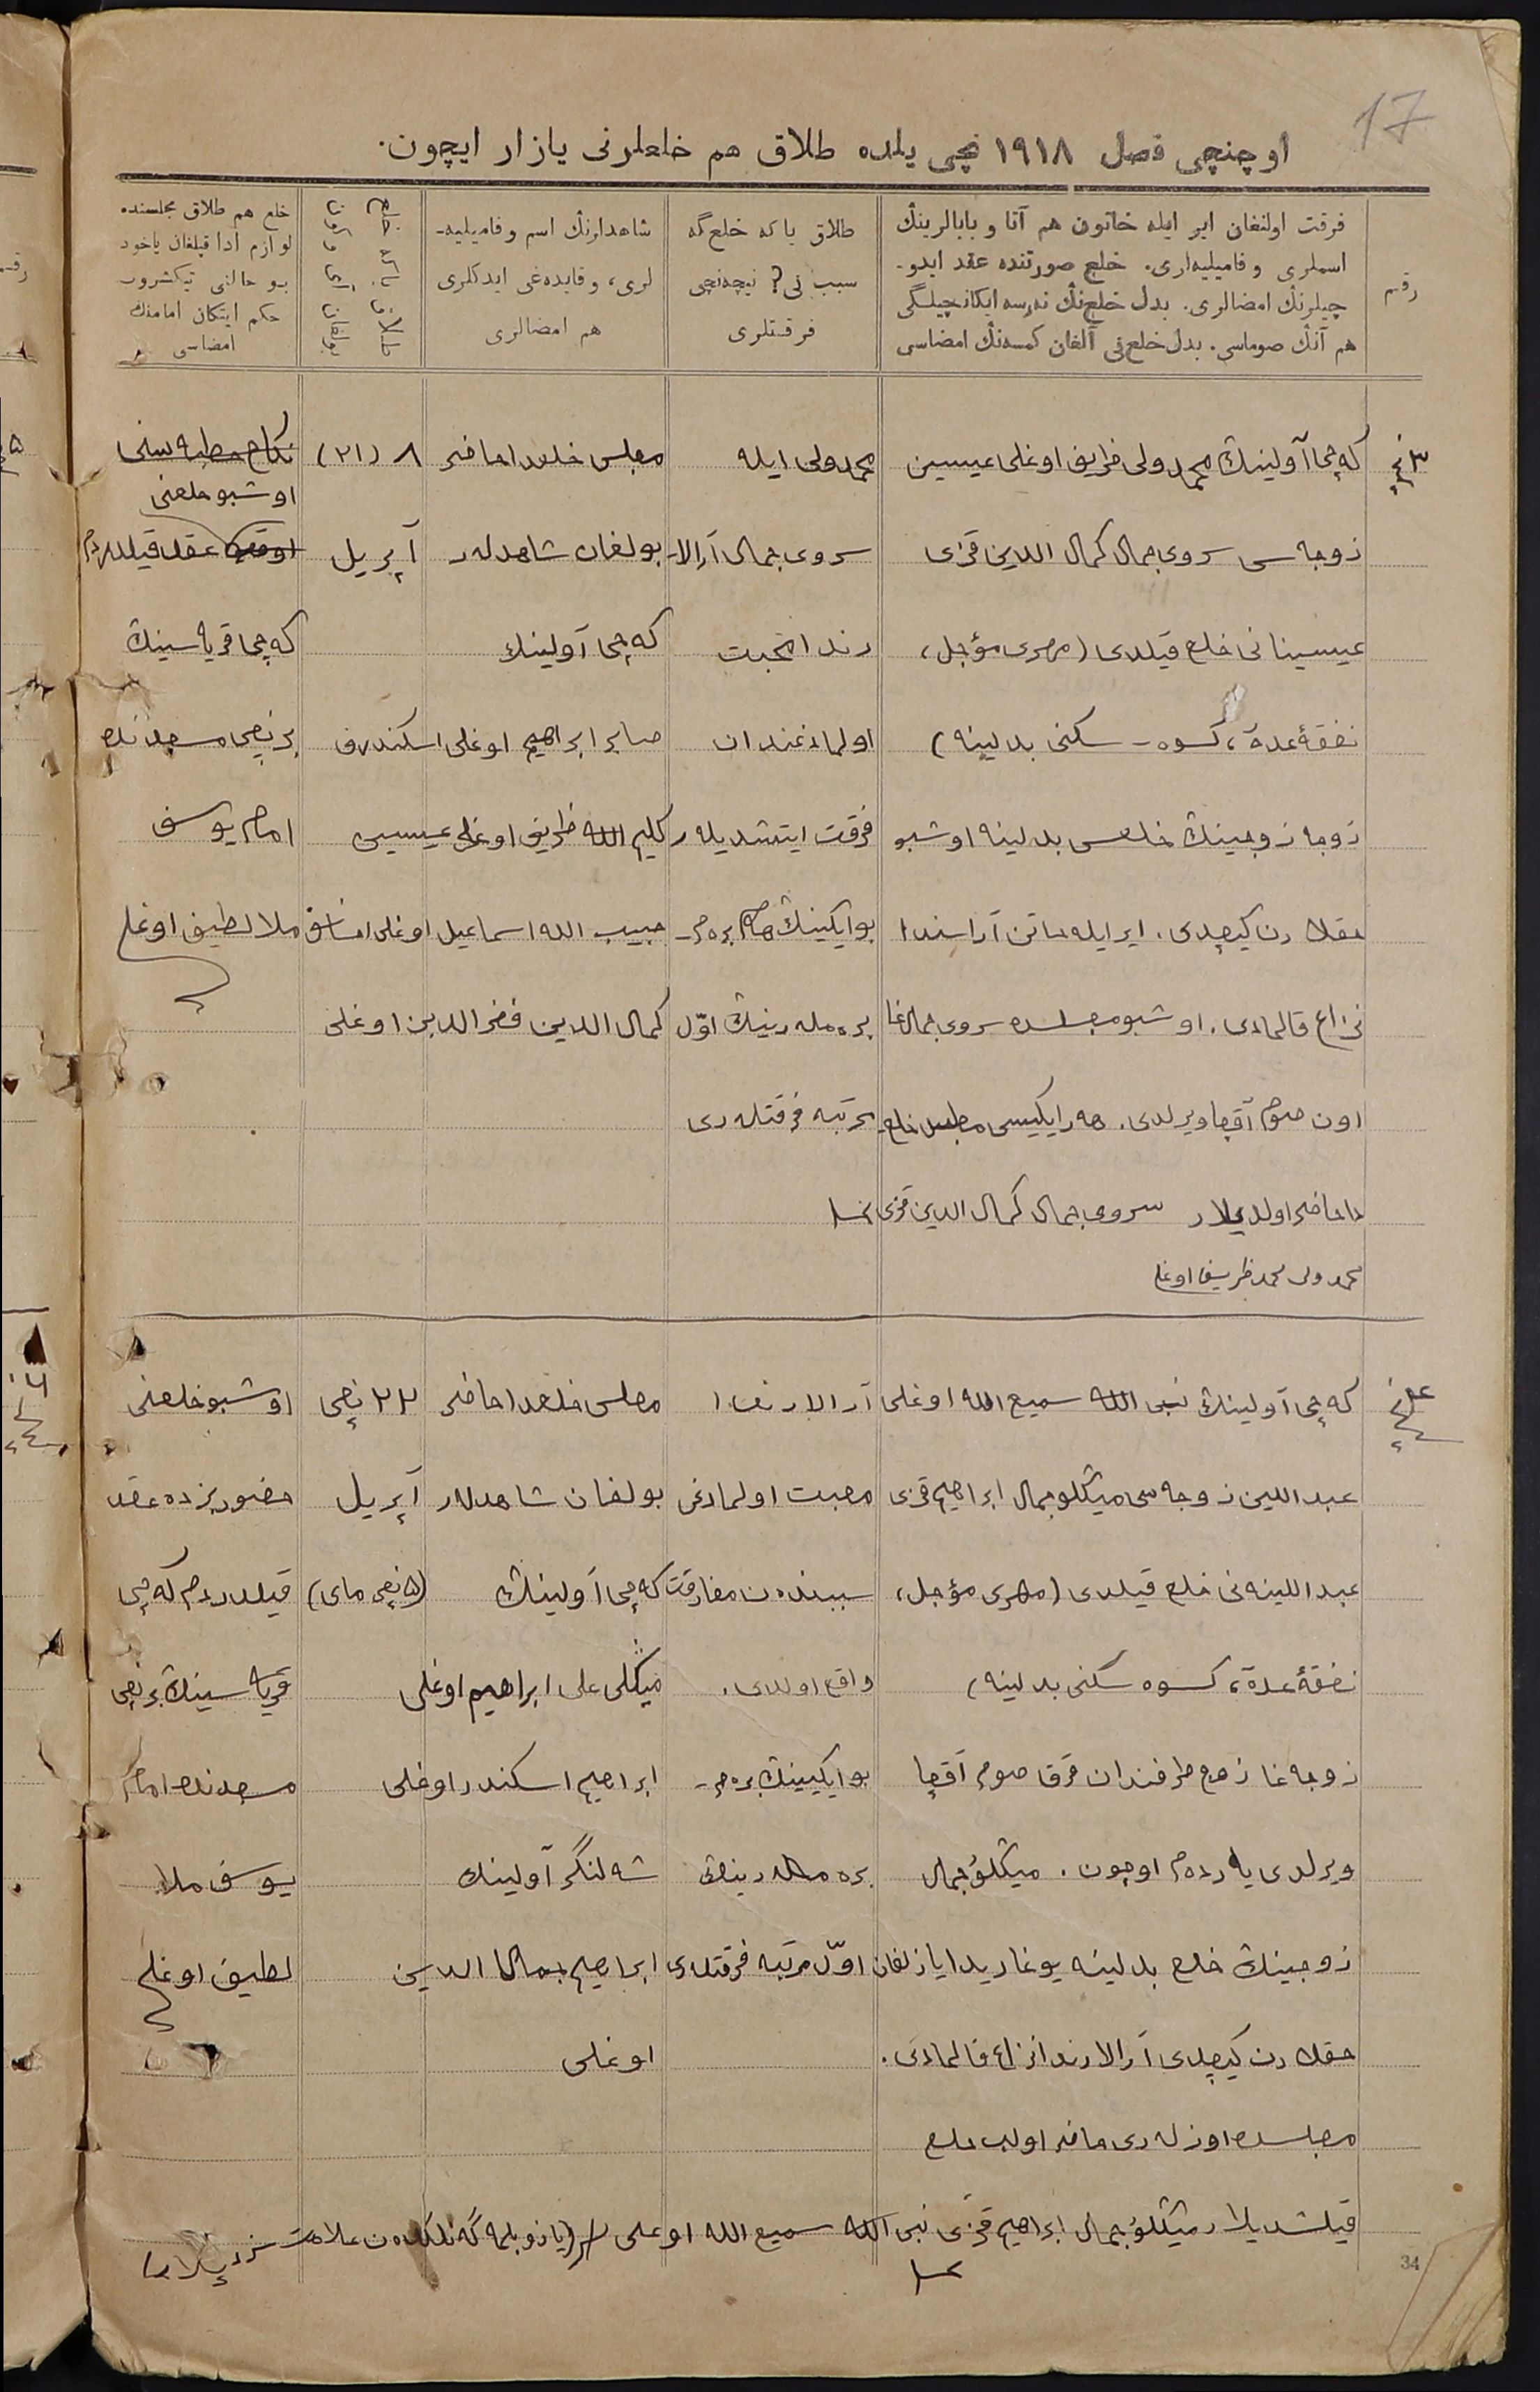 17
اوچنچی فصل ۱۹۱۸ نچی یلده طلاق هم خلعلرنی یازار ایچون.
رقم
فرقت اولنغان ایر ایله خاتون هم آتا و بابالرینڭ
اسملری و فامیلیەلری. خلع صورتنده عقد ایدو-
چیلرنڭ امضالری. بدل خلع‌نڭ نەرسە ایکانچیلگی
هم آنڭ صوماسی. بدل خلع‌نی آلغان کمسەنڭ امضاسی
طلاق یاکە خلع‌گە
سبب نی؟ نیچەنچی
فرقتلری
شاهدلرنڭ اسم و فامیلیە-
لری، و قایدەغی ایدکلری
هم امضالری
خلع هم طلاق مجلسنده
لوازم ادا قیلغان یاخود
بو حالنی تیکشروب
حکم ایتکان امامنڭ
امضاسی
۳نچی
کەچی آولینڭ محمدولی ظریف اوغلی عیسین
زوجەسی سروی جمال کمال الدین قزی
عیسینانی خلع قیلدی (مهری مؤجل،
نفقۀ عدة، کسوه - سکنی بدلینه)
زوجه زوجینڭ خلعسی بدلینه اوشبو
حقلاردن کیچدی. ایر ایله خاتن آراسندا
نزاع قالمادی. اوشبو مجلسده سروی جمالغا
اون صوم آقچا ویرلدی. هەر ایکیسی مجلس خلع-
دا حاضر اولدیلار سروی جمال کمال الدین قزی
محمدولی محمدظریف اوغلی
محمدولی ایله
سروی جمال آرالا-
رندا محبت
اولمادغندان
فرقت ایتشدیلەر
بو ایکینڭ هم برەم-
برەملەرینڭ اوّل
مرتبه فرقتلەری
مجلس خلعدا حاضر
بولغان شاهدلەر
کەچی آولینڭ
صابر ابراهیم اوغلی اسکندرف
کلیم الله ظریف اوغلی عیسیی
حبیب الله اسماعیل اوغلی
کمال الدین فخرالدین اوغلی
۸ (۲۱)
آپریل
اوشبو خلعنی
عقد قیلدردم
کەچی قریەسینڭ
برنچی مسجدندە
امام یوسف
ملا لطیف اوغلی
۴نچی
کەچی آولینڭ نبی الله سمیع الله اوغلی
عبداللین زوجەسی میڭلوجمال ابراهیم قزی
عبداللینەنی خلع قیلدی (مهری مؤجل،
نفقۀ عدة، کسوه سکنی بدلینه)
زوجەغا زوج طرفندان قرق صوم آقچا
ویرلدی یاردەم اوچون. میڭلوجمال
زوجینڭ خلع بدلینه یوغاریدا یازلغان
حقلاردن کیچدی آرالارندا نزاع قالمادی.
مجلسدە اوزلەری حاضر اولب خلع
قیلشدیلار میڭلوجمال ابراهیم قزی نبی الله سمیع الله اوغلی
آرالارندا
محبت اولمادغی
سببندەن مفارقت
واقع اولدی.
بو ایکیینڭ برەم-
برەملەرینڭ
اوّل مرتبه فرقتلەری
مجلس خلعدا حاضر
بولغان شاهدلەر
کەچی آولینڭ
میڭلی علی ابراهیم اوغلی
ابراهیم اسکندر اوغلی
شەلنگر آولینڭ
ابراهیم جمال الدین
اوغلی
۲۲ نچی
آپریل
(۵نچی مای)
اوشبو خلعنی
حضوربزدە عقد
قیلدردم کەچی
قریەسینڭ برنچی
مسجدندە امام
یوسف ملا
لطیف اوغلی
34